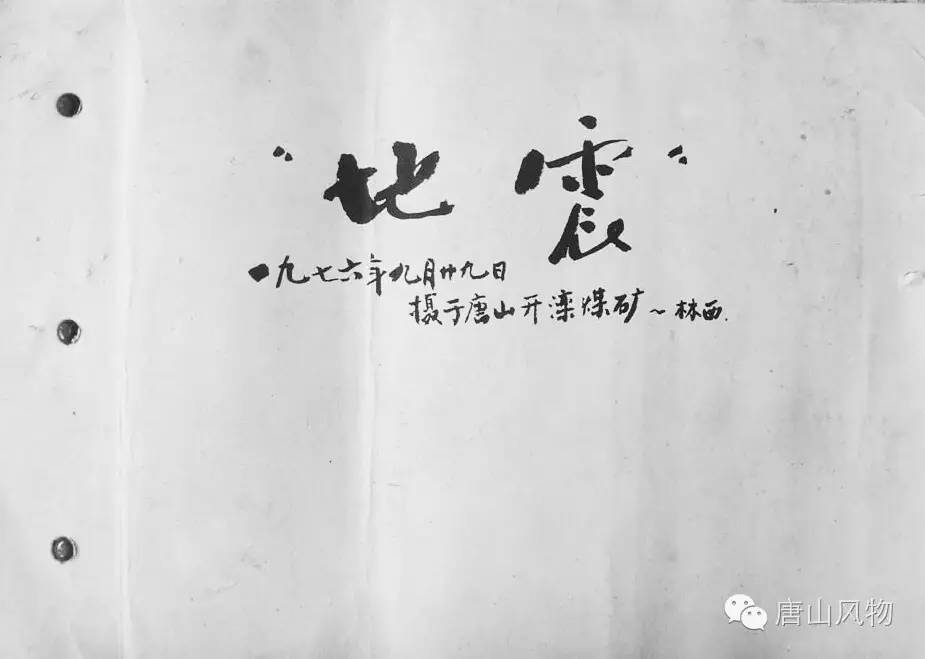 "地震"
一九七六年九月廿九日
摄于唐山开滦煤矿~林西.
唐山风物